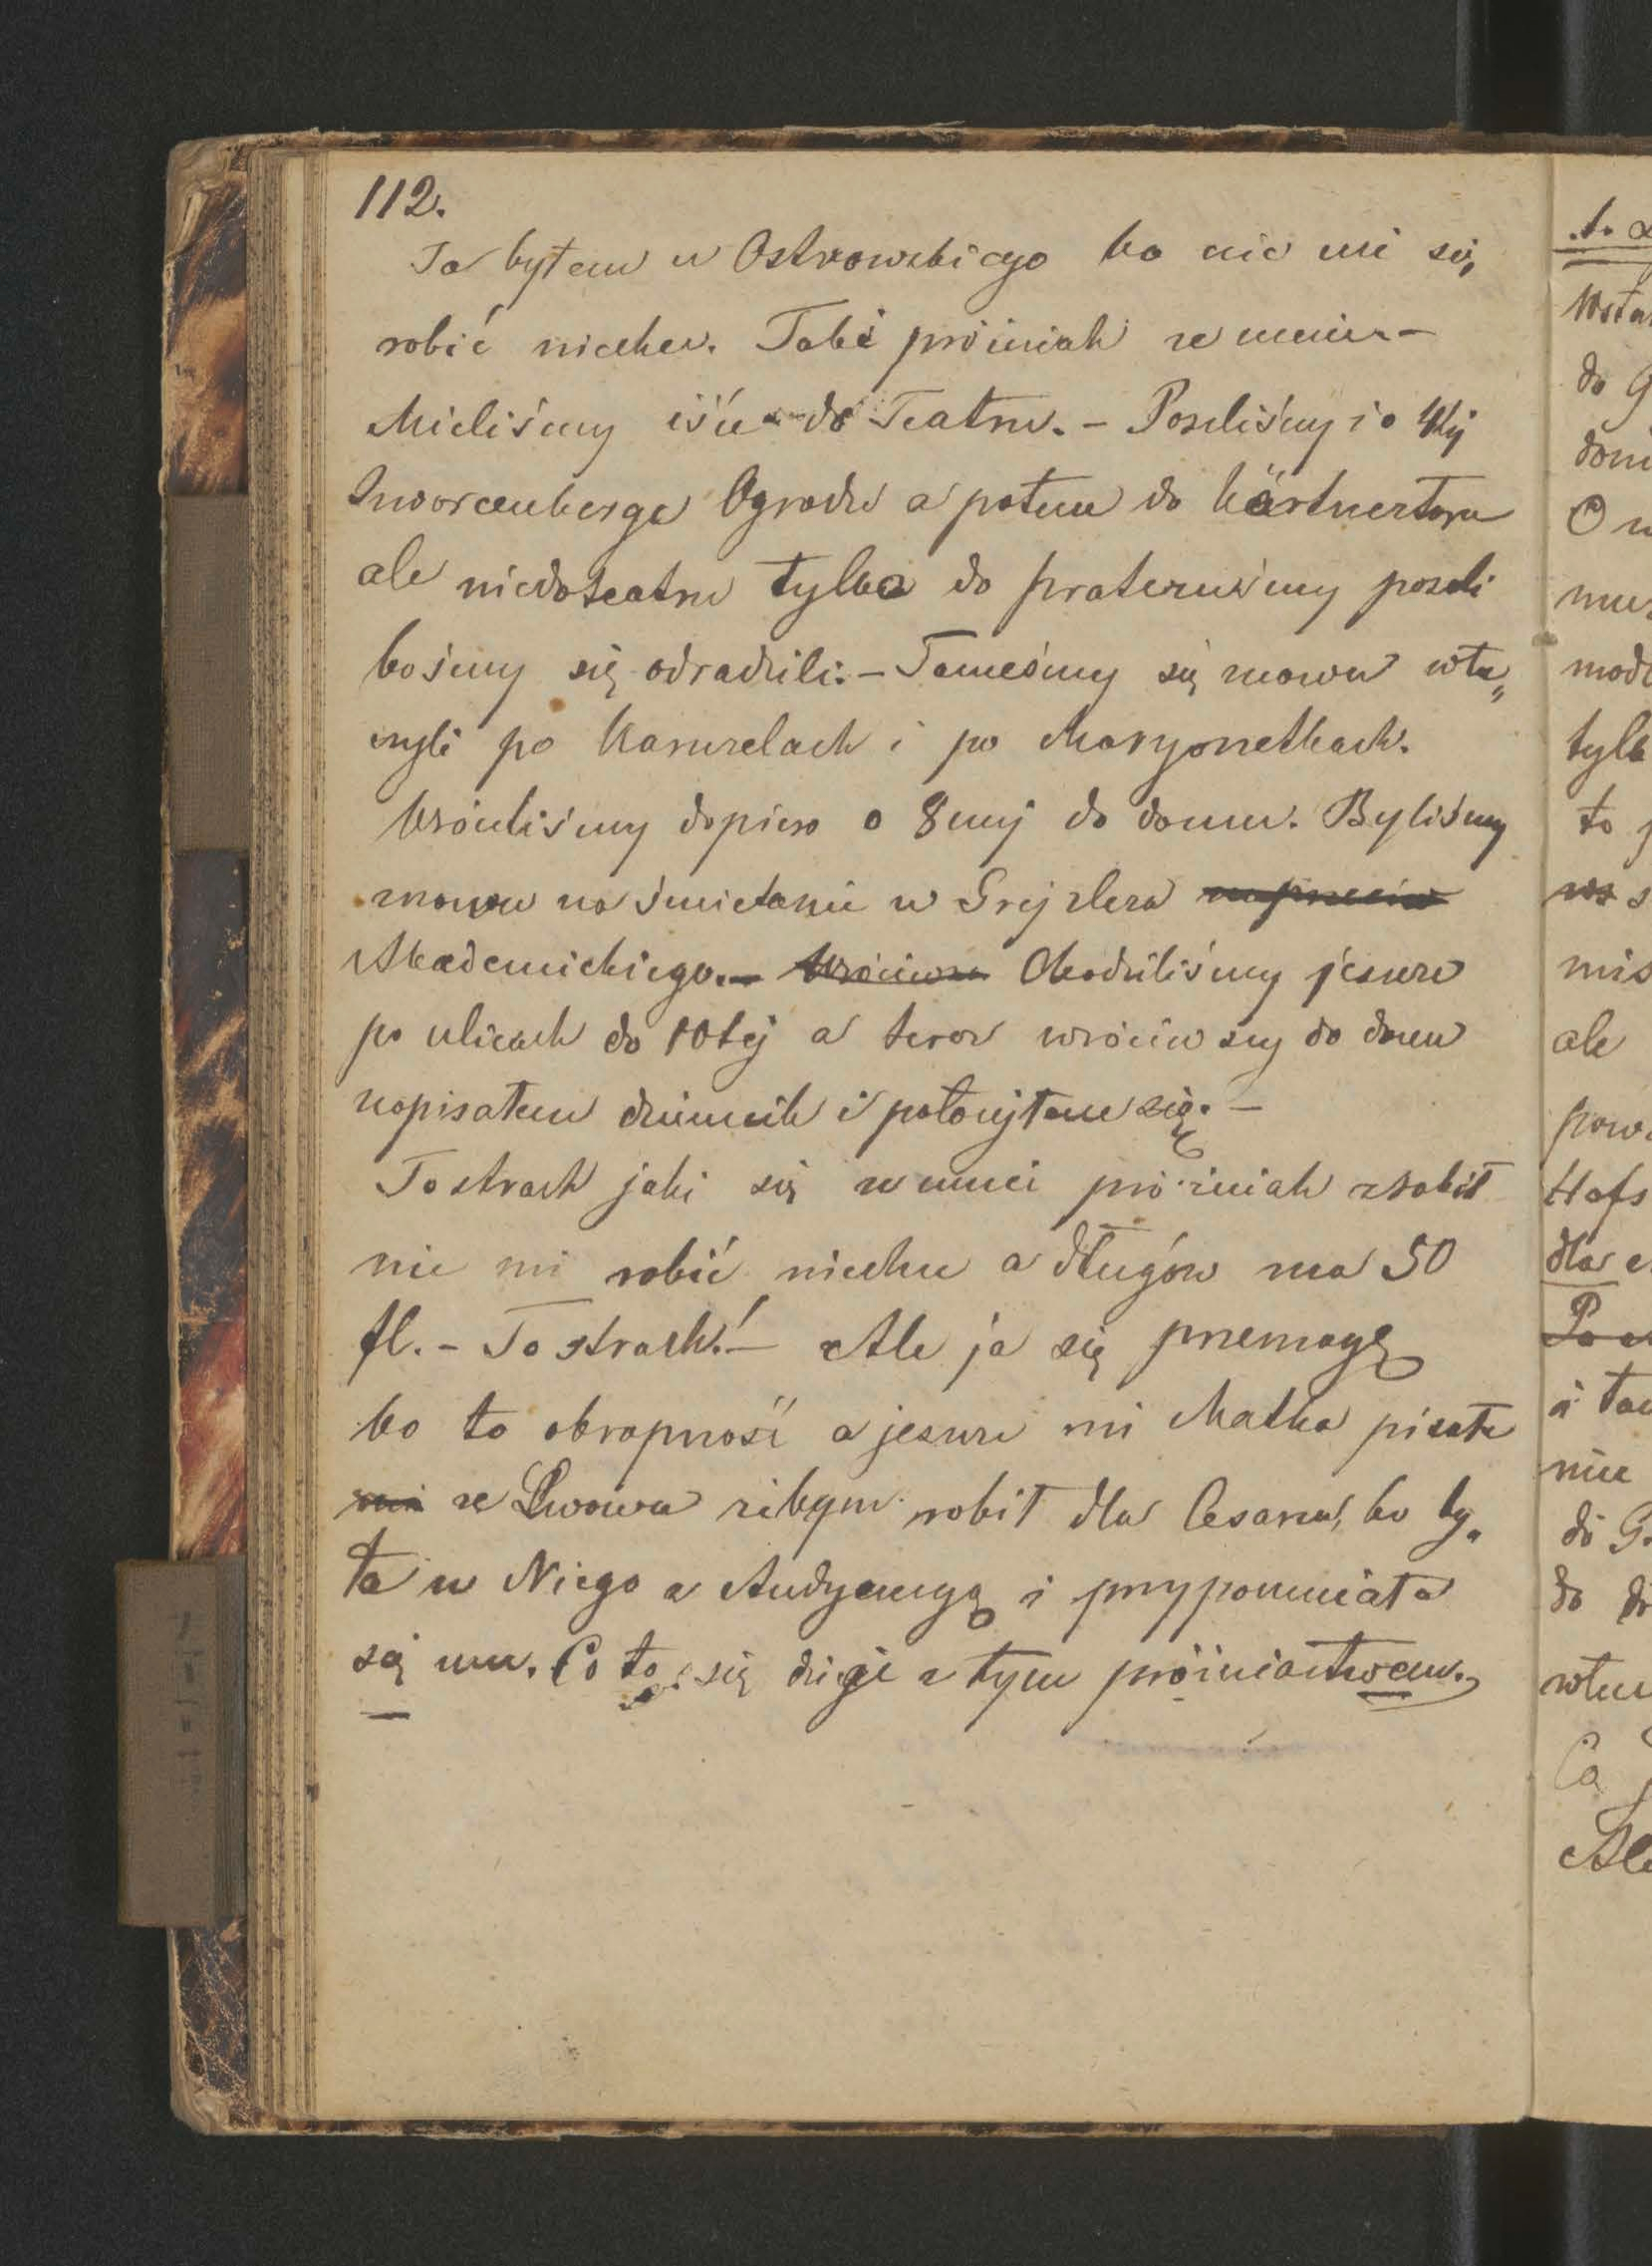 112.
Ja byłem u Ostrowskiego bo nic mi się
robić niechce. Taki próżniak ze mnie –
Mieliśmy iść do Teatru. – Poszliśmy i o 4tej
Szworcenberga Ogrodu a potem do Kärtnertora
ale niedoteatru tylko do prateruśmy poszli
bośmy się odradzili. – Tameśmy się znowu włu„
czyli po Karuzelach i po Maryonetkach.
Wróciliśmy dopiero o 8mej do domu. Byliśmy
znowu na śmietanie u Grejzlera naprzeciw
Akademickiego. – Wróciwsz Chodziliśmy jeszcze
po ulicach do 10tej a teraz wróciwszy do domu
napisałem dziennik i położyłem się. –
To strach jaki się zemnie próżniak zrobił
nic mi robić niechce a długów ma 50
fl. – To strach! – Ale ja się przemogę
bo to okropność a jeszcze mi Matka pisała
mi ze Lwowa żebym robił dla Cesarza, bo by„
ła u Niego z Audyencyą i przypomniała
się mu. Co to się dzieje z tym próżniactwem.